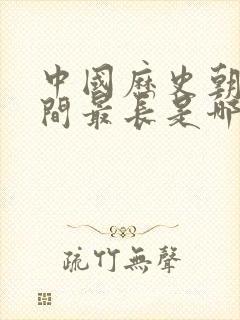 中國歷史朝
間最長是哪
疏竹無聲